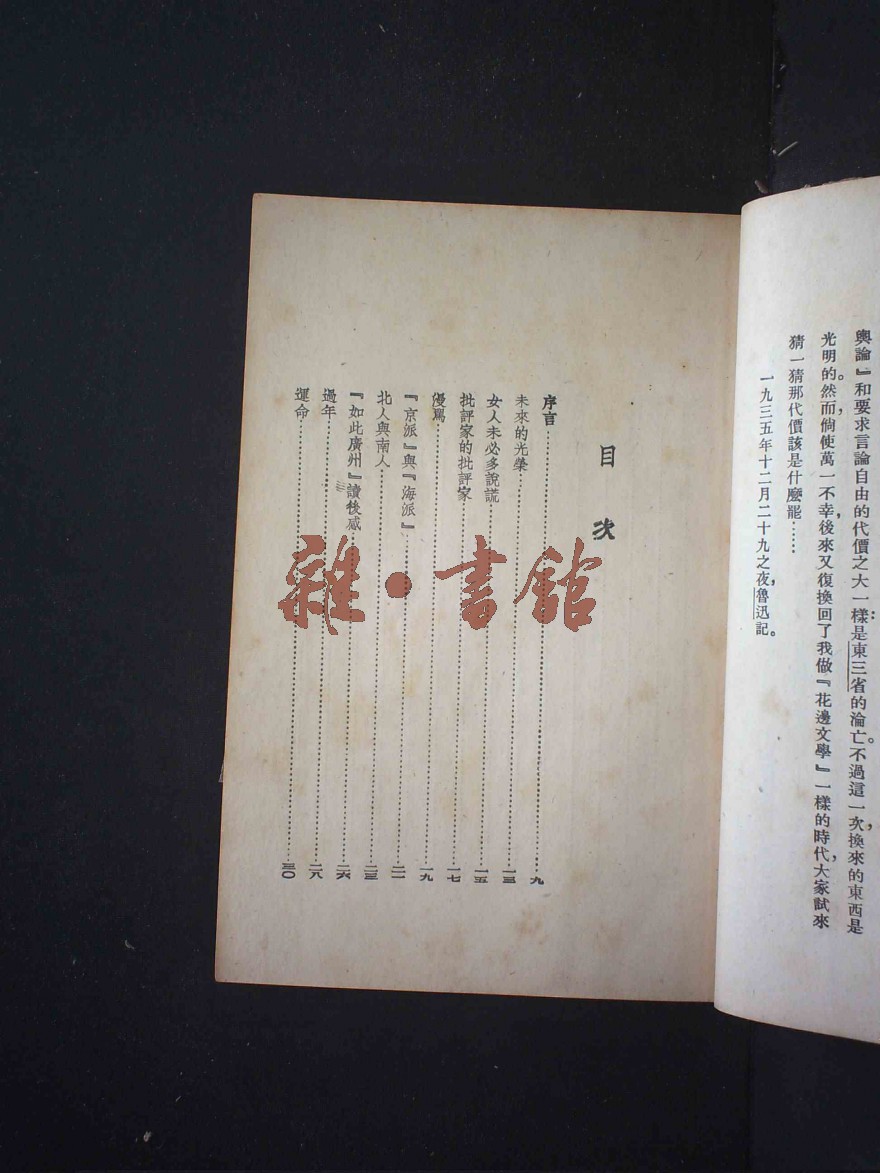 輿論』和要求言論自由的代價之大一樣：是東三省的淪亡。不過這一次，換來的東西是
光明的。然而，倘使萬一不幸，後來又復換回了我做『花邊文學』一樣的時代，大家試來
猜一猜那代價該是什麼罷……
一九三五年十二月二十九之夜，魯迅記。
目次
序言……九
未來的光榮……一三
女人未必多說謊……一五
批評家的批評家……一七
漫罵……一九
『京派』與『海派』……二一
北人與南人……二三
『如此廣州』讀後感……二六
過年……二八
運命……三〇
雜·書館